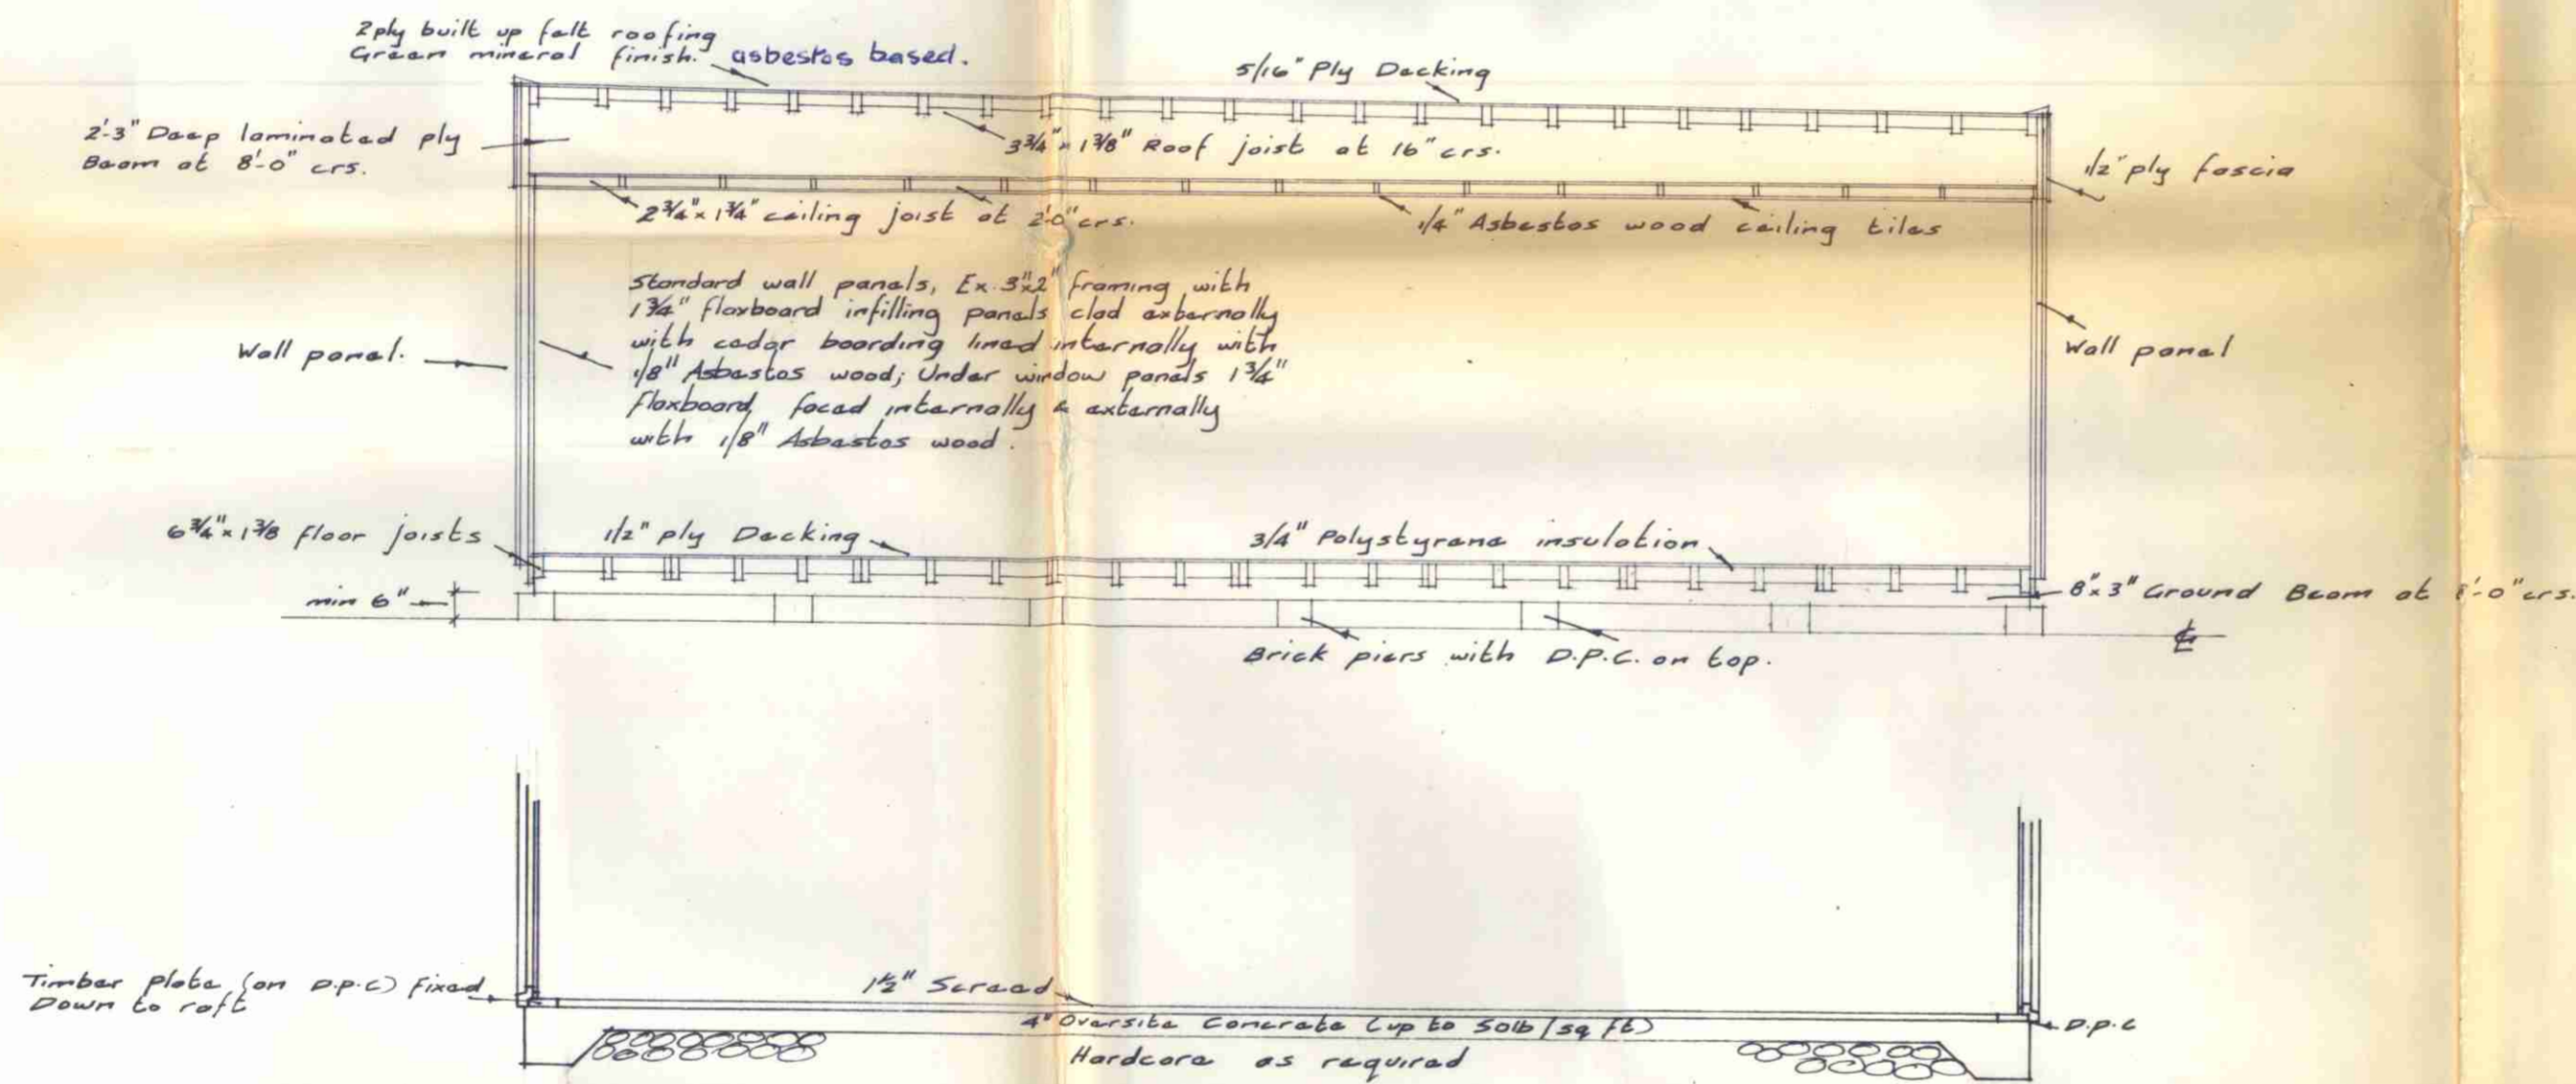 2 ply built up felt roofing
Green mineral finish. asbestos based.
5/16" Ply Decking
2'-3" Deep laminated ply
Beam at 8'-0" crs.
3¾" x 1⅜" Roof joist at 16" crs.
1/2" ply fascia
2¾" x 1¾" ceiling joist at 2'-0" crs.
1/4" Asbestos wood ceiling tiles
Standard wall panels, Ex. 3"x2" framing with
1¾" flaxboard infilling panels clad externally
with cedar boarding lined internally with
1/8" Asbestos wood; Under window panels 1¾"
flaxboard faced internally & externally
with 1/8" Asbestos wood.
Wall panel.
Wall panel
6¾" x 1⅜ floor joists
1/2" ply Decking
3/4" Polystyrene insulation
min 6"
8"x 3" Ground Beam at 8'-0" crs.
Brick piers with D.P.C. on top.
Timber plate (on D.P.C) fixed
Down to raft
1½" Screed
4" Oversite Concrete (up to 50lb/sq ft)
D.P.C
Hardcore as required